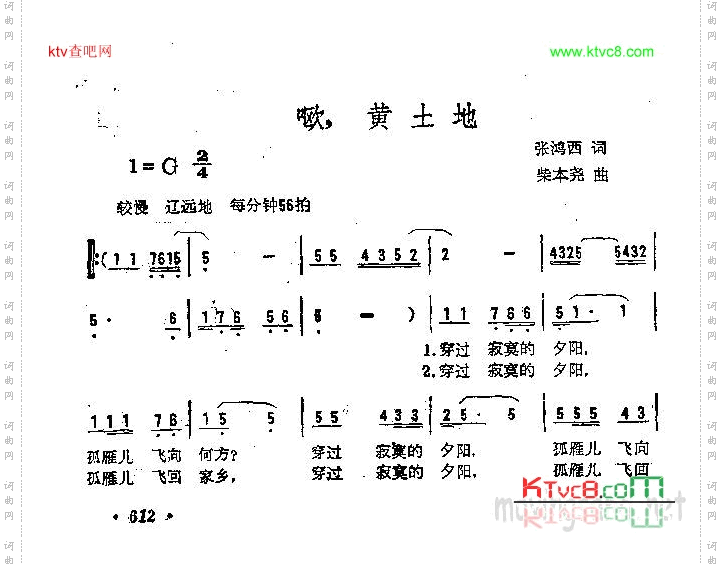 ktv查吧网
www.ktvc8.com
噢,黄土地
张鸿西 词
柴本尧 曲
1=G 2/4
较慢 辽远地 每分钟56拍
‖:( 1 1 7615 | 5 - | 5 5 4 3 5 2 | 2 - | 4325 5432 |
5· 6 | 1 7 6 5 6 | 5 - ) | 1 1 7 6 6 | 5 1· 1 |
1.穿过 寂寞的 夕阳,
2.穿过 寂寞的 夕阳,
1 1 1 7 6 | 1 5 5 | 5 5 4 3 3 | 2 5· 5 | 5 5 5 4 3 |
孤雁儿 飞向 何方? 穿过 寂寞的 夕阳, 孤雁儿 飞向
孤雁儿 飞回 家乡, 穿过 寂寞的 夕阳, 孤雁儿 飞回
KTvc8.com
· 612 ·
词曲网
词曲网
词曲网
词曲网
词曲网
词曲网
词曲网
词曲网
词曲网
词曲网